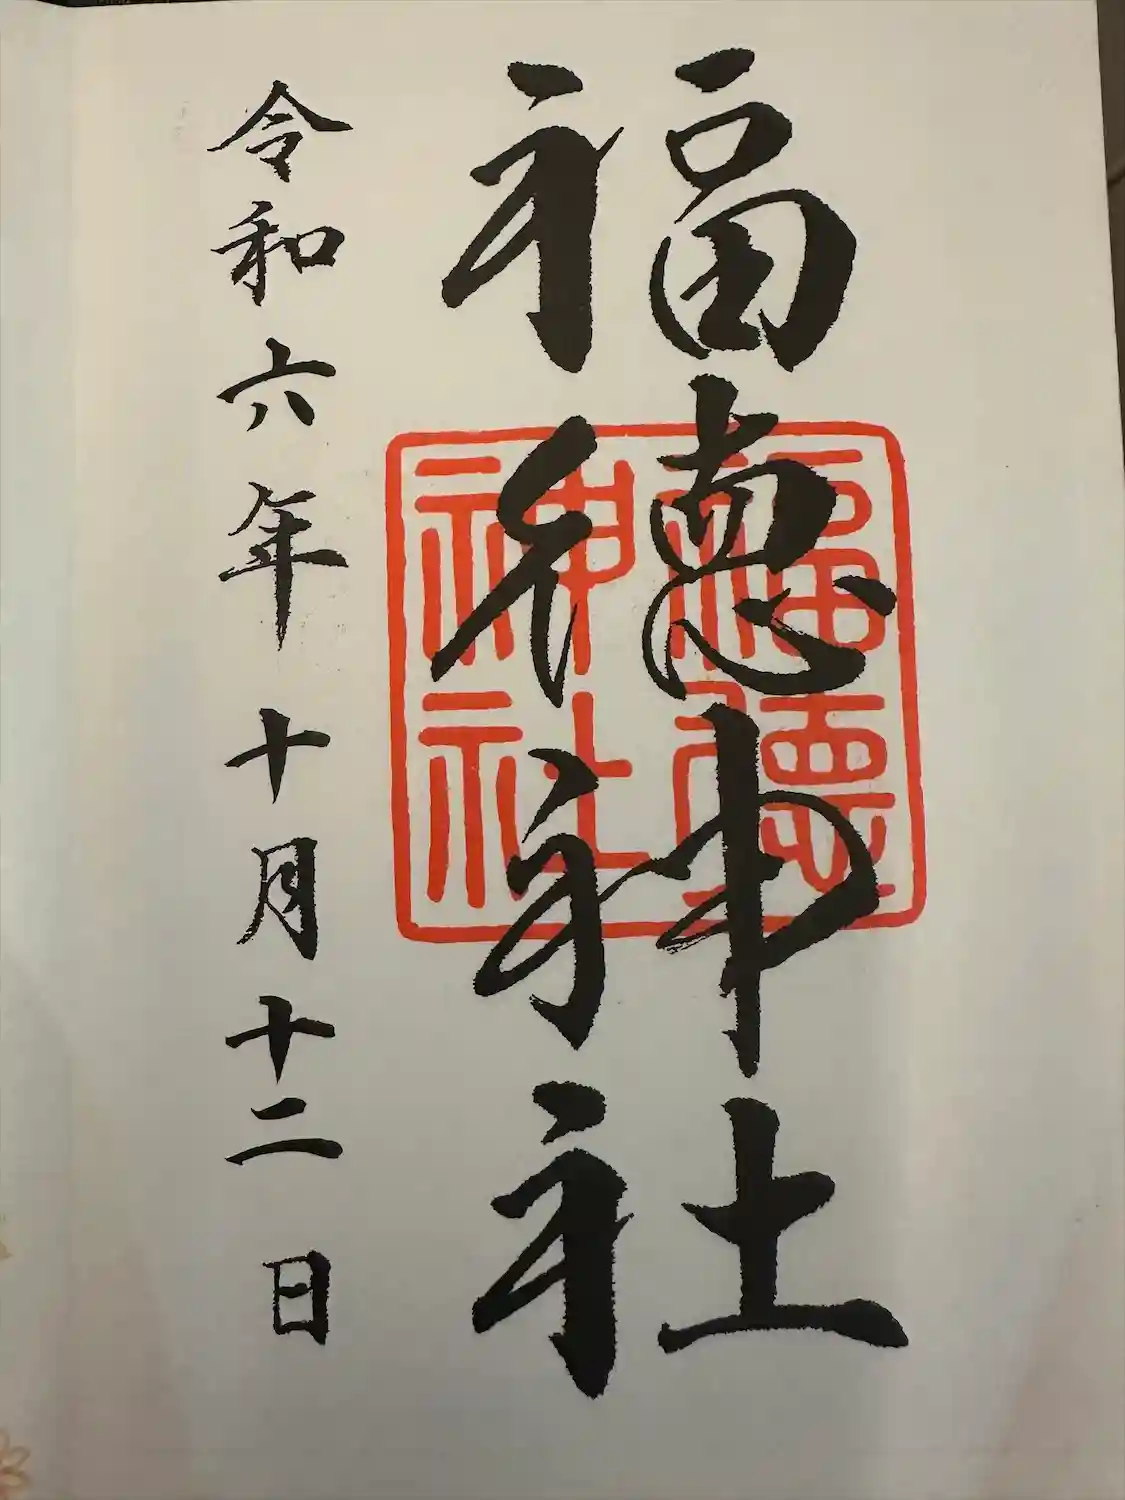 福徳神社
福徳神社
令和六年十月十二日